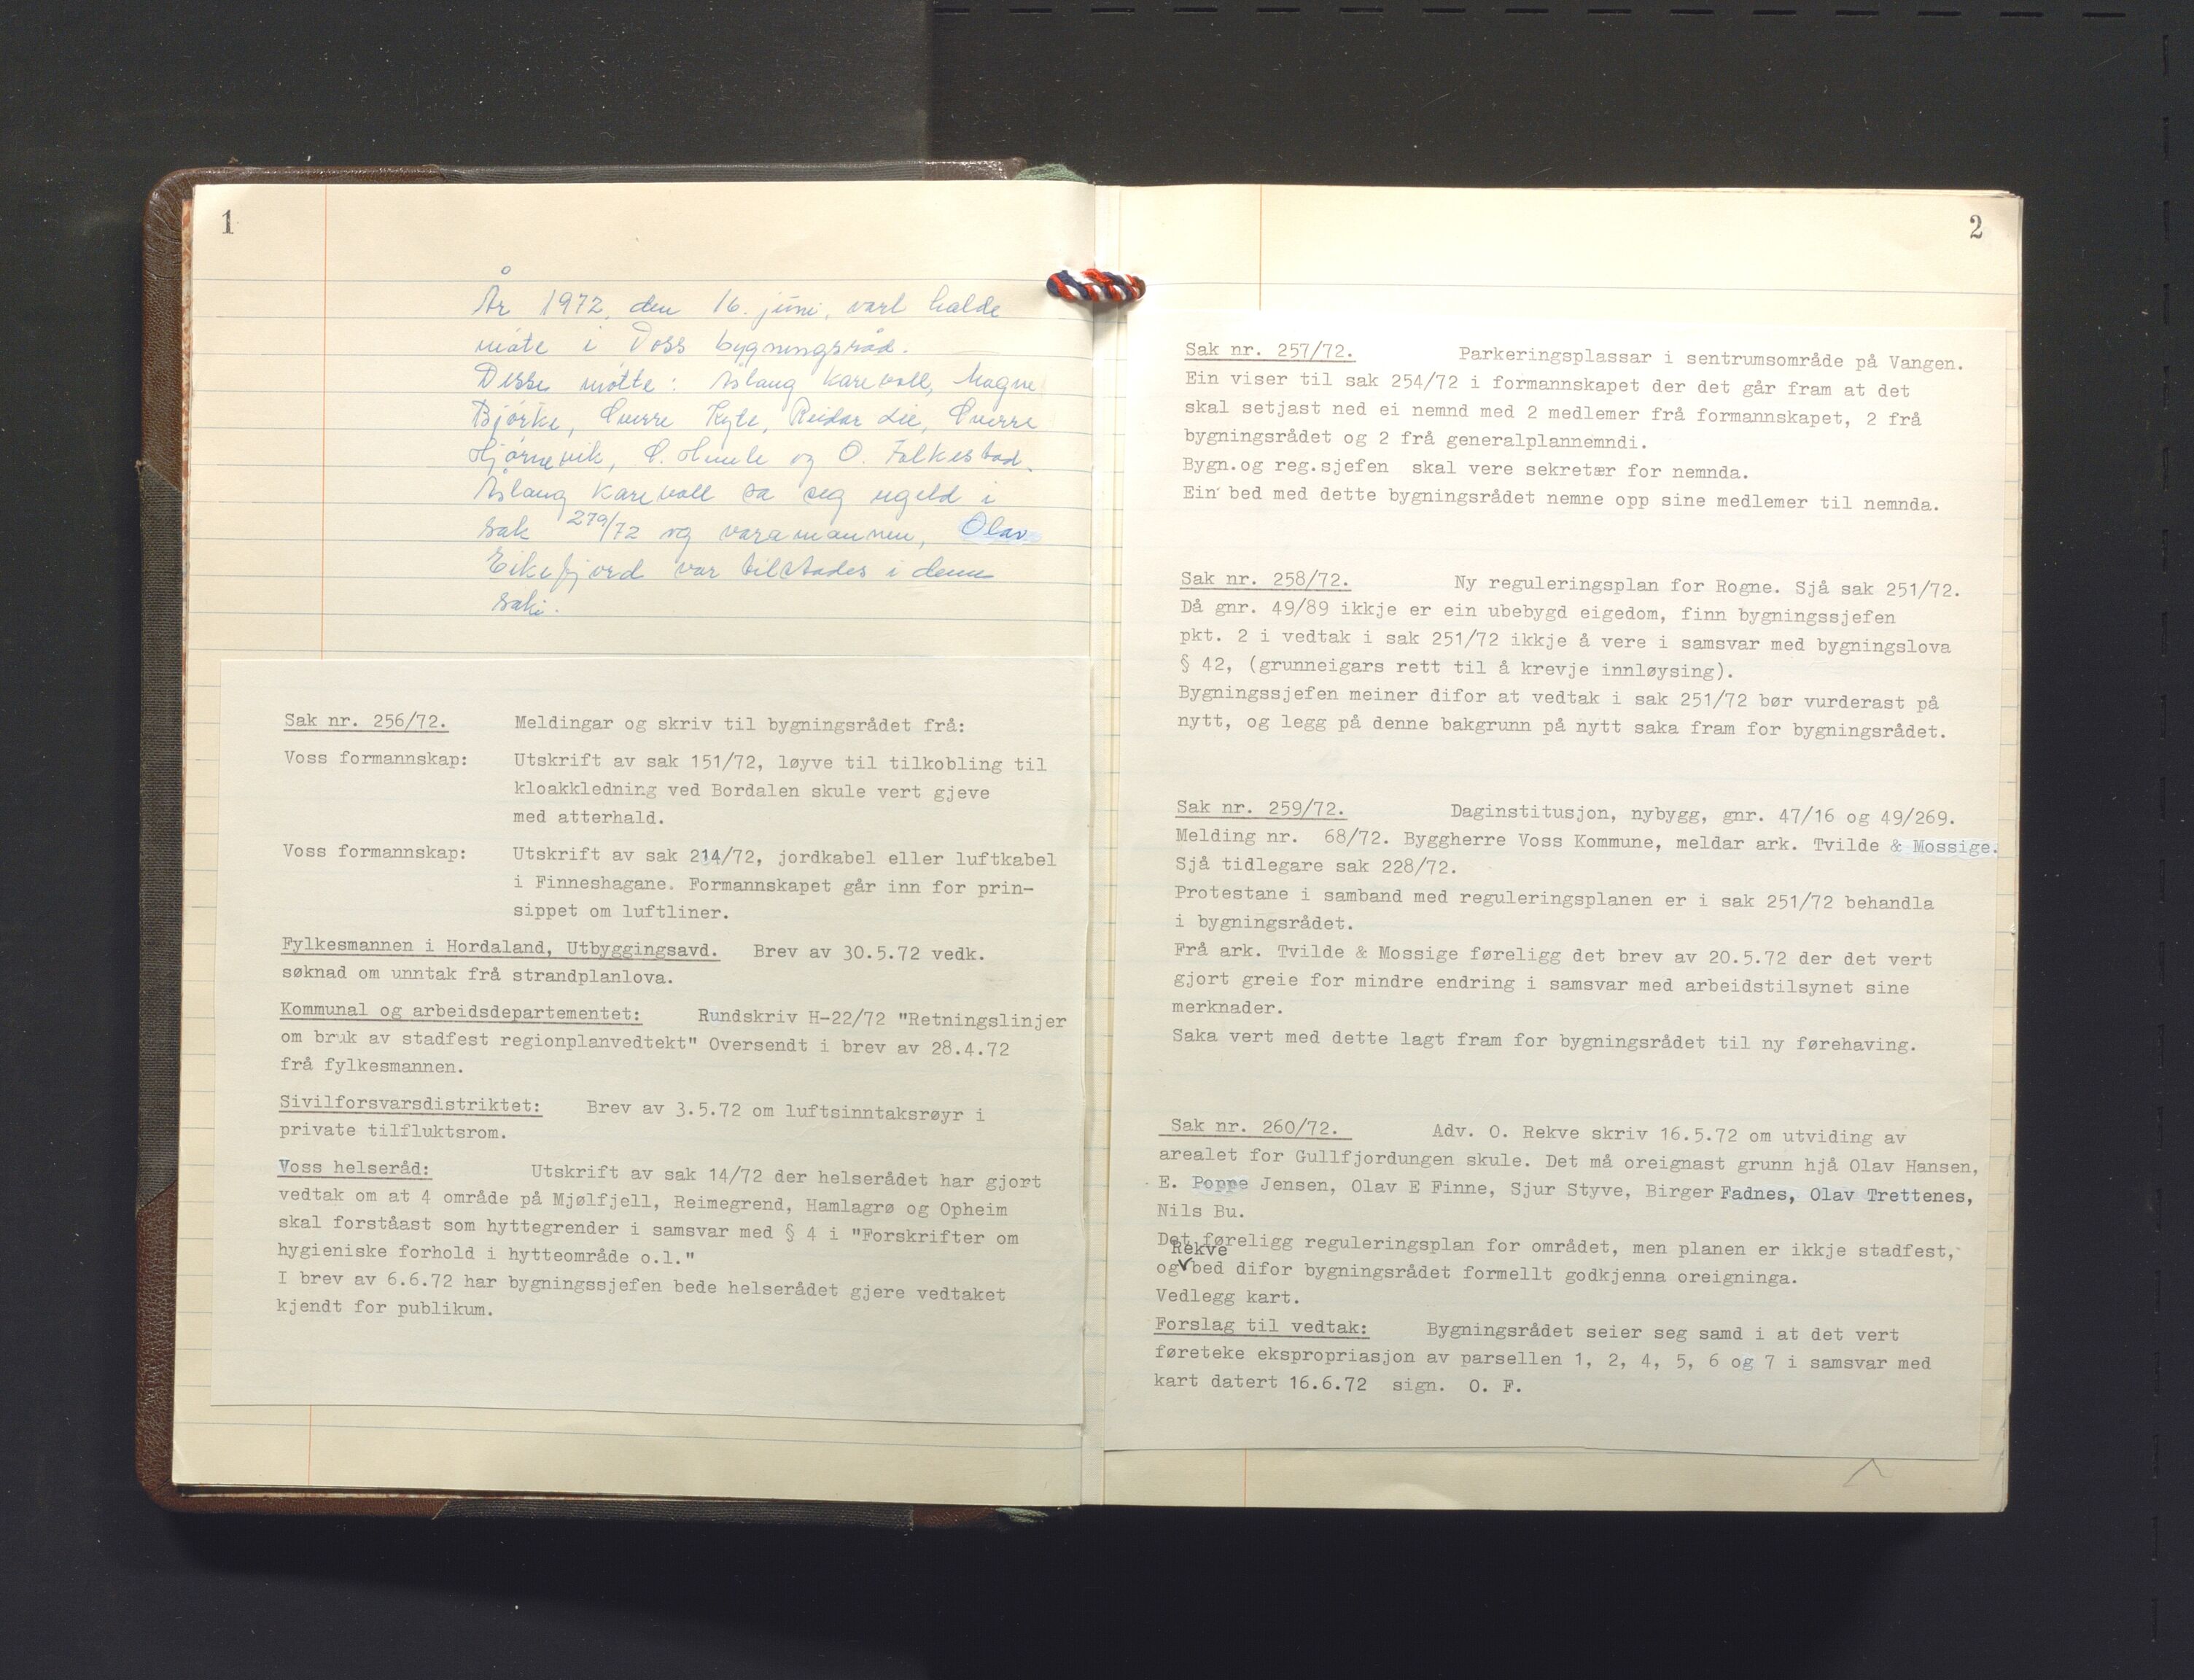 1
År 1972, den 16. juni, vart halde
møte i Voss bygningsråd.
Desse møtte: Aslaug Karevoll, Magne
Bjørke, Sverre Kyte, Reidar Lie, Sverre
Hjørnevik, O. Humle og O. Falkestad.
Aslaug Karevoll sa seg ugeld i
sak 279/72 og varamannen, Olav
Eikefjord var tilstades i denne
saki.
Sak nr. 256/72. Meldingar og skriv til bygningsrådet frå:
Voss formannskap: Utskrift av sak 151/72, løyve til tilkobling til
kloakkledning ved Bordalen skule vert gjeve
med atterhald.
Voss formannskap: Utskrift av sak 214/72, jordkabel eller luftkabel
i Finneshagane. Formannskapet går inn for prin-
sippet om luftliner.
Fylkesmannen i Hordaland, Utbyggingsavd. Brev av 30.5.72 vedk.
søknad om unntak frå strandplanlova.
Kommunal og arbeidsdepartementet: Rundskriv H-22/72 "Retningslinjer
om bruk av stadfest regionplanvedtekt" Oversendt i brev av 28.4.72
frå fylkesmannen.
Sivilforsvarsdistriktet: Brev av 3.5.72 om luftsinntaksrøyr i
private tilfluktsrom.
Voss helseråd: Utskrift av sak 14/72 der helserådet har gjort
vedtak om at 4 område på Mjølfjell, Reimegrend, Hamlagrø og Opheim
skal forståast som hyttegrender i samsvar med § 4 i "Forskrifter om
hygieniske forhold i hytteområde o.l."
I brev av 6.6.72 har bygningssjefen bede helserådet gjere vedtaket
kjendt for publikum.
2
Sak nr. 257/72. Parkeringsplassar i sentrumsområde på Vangen.
Ein viser til sak 254/72 i formannskapet der det går fram at det
skal setjast ned ei nemnd med 2 medlemer frå formannskapet, 2 frå
bygningsrådet og 2 frå generalplannemndi.
Bygn.og reg.sjefen skal vere sekretær for nemnda.
Ein bed med dette bygningsrådet nemne opp sine medlemer til nemnda.
Sak nr. 258/72. Ny reguleringsplan for Rogne. Sjå sak 251/72.
Då gnr. 49/89 ikkje er ein ubebygd eigedom, finn bygningssjefen
pkt. 2 i vedtak i sak 251/72 ikkje å vere i samsvar med bygningslova
§ 42, (grunneigars rett til å krevje innløysing).
Bygningssjefen meiner difor at vedtak i sak 251/72 bør vurderast på
nytt, og legg på denne bakgrunn på nytt saka fram for bygningsrådet.
Sak nr. 259/72. Daginstitusjon, nybygg, gnr. 47/16 og 49/269.
Melding nr. 68/72. Byggherre Voss Kommune, meldar ark. Tvilde & Mossige.
Sjå tidlegare sak 228/72.
Protestane i samband med reguleringsplanen er i sak 251/72 behandla
i bygningsrådet.
Frå ark. Tvilde & Mossige føreligg det brev av 20.5.72 der det vert
gjort greie for mindre endring i samsvar med arbeidstilsynet sine
merknader.
Saka vert med dette lagt fram for bygningsrådet til ny førehaving.
Sak nr. 260/72. Adv. O. Rekve skriv 16.5.72 om utviding av
arealet for Gullfjordungen skule. Det må oreignast grunn hjå Olav Hansen,
E. Poppe Jensen, Olav E Finne, Sjur Styve, Birger Fadnes, Olav Trettenes,
Nils Bu.
Det føreligg reguleringsplan for området, men planen er ikkje stadfest,
Rekve
og bed difor bygningsrådet formellt godkjenna oreigninga.
Vedlegg kart.
Forslag til vedtak: Bygningsrådet seier seg samd i at det vert
føreteke ekspropriasjon av parsellen 1, 2, 4, 5, 6 og 7 i samsvar med
kart datert 16.6.72 sign. O. F.